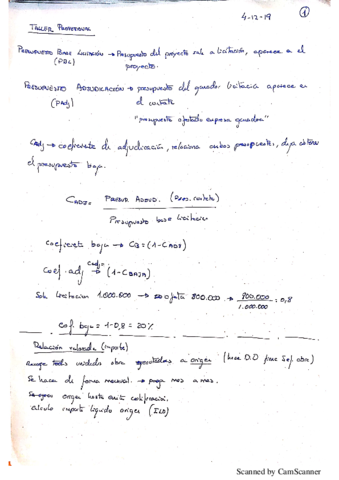 4-12-19
1
TALLER PROFESIONAL
PRESUPUESTO BASE LICITACIÓN → Presupuesto del proyecto sale a licitación, aparece en el
(PBL) proyecto.
PRESUPUESTO ADJUDICACIÓN → presupuesto del ganador licitación aparece en
(PAdj) el contrato
"presupuesto ofertado empresa ganadora"
Cadj → coeficiente de adjudicación, relaciona ambos presupuestos, deja obtener
el presupuesto baja.
CADJ = (Pres. contrato)
Presupuesto base licitación
Coeficiente baja → CB = (1-CADJ)
Coef. adj Cadj = → (1-CBAJA)
licitacion 1.000.000 → oferta 800.000 → 800.000 / 1.000.000 = 0,8
Cof. baja = 1-0,8 = 20%
Relación valorada (importe)
Recoge todas unidades obra ejecutadas a origen
Se hace de forma mensual. → paga mes a mes.
origen hasta certificación.
Cálculo importe líquido origen (ILO)
Scanned by CamScanner